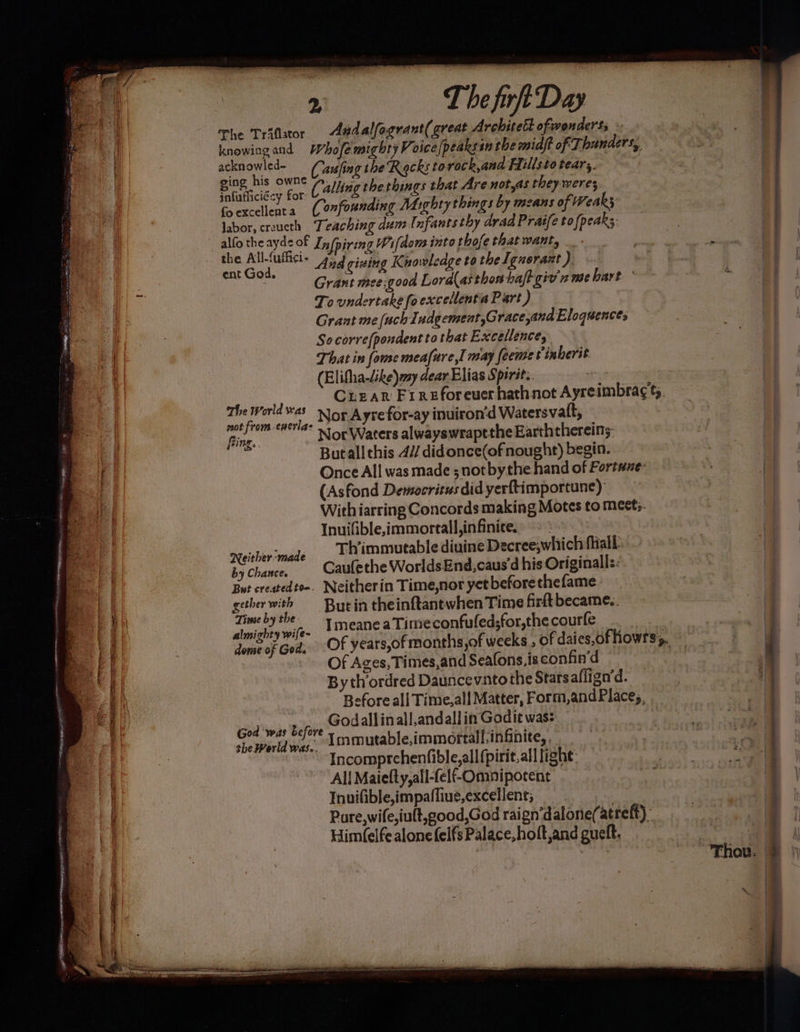 2 The first Day
The Trāslator
knowing and
acknowled-
ging his owne
insufficiēcy for
so excellent a
labor, craueth
also the ayde of
the All-suffici-
ent God.
And also grant (great Architect of wonders,
Whose mighty Voice speaks in the midst of Thunders,
Causing the Rocks to rock, and Hills to tear,
Calling the things that Are not, as they were,
Confounding Mighty things by means of Weak,
Teaching dum Infants thy drad Praise to speak,
Inspiring Wisdom into those that want,
And giuing Knowledge to the Ignorant)
Grant mee, good Lord (as thou hast giv'n me hart
To vndertake so excellent a Part)
Grant me such Iudgement, Grace, and Eloquence,
So correspondent to that Excellence,
That in some measure, I may seeme t'inherit
(Elisha-like) my dear Elias Spirit.
The World was
not from euerla-
sting.
CLEAR FIRE for euer hath not Ayre imbrac't,
Nor Ayre for-ay inuiron'd Waters vast,
Nor Waters always wrapt the Earth therein;
But all this All did once (of nought) begin.
Once All was made; not by the hand of Fortune
(As fond Democritus did yerst importune)
With iarring Concords making Motes to meet,
Inuisible, immortall, infinite.
Neither made
by Chance.
But created to-
gether with
Time by the
almighty wise-
dome of God.
Th'immutable diuine Decree, which shall
Cause the Worlds End, caus'd his Originall:
Neither in Time, nor yet before the same
But in the instant when Time first became.
I meane a Time confused; for, the course
Of years, of months, of weeks, of daies, of howrs,
Of Ages, Times, and Seasons, is confin'd
By th'ordred Daunce vnto the Stars assign'd.
God was before
the World was.
Before all Time, all Matter, Form, and Place,
God all in all, and all in God it was:
Immutable, immortall, infinite,
Incomprehensible, all spirit, all light
All Maiesty, all-self-Omnipotent
Inuisible, impassiue, excellent,
Pure, wise, iust, good, God raign'd alone (at rest)
Himselfe alone selfs Palace, host, and guest.
Thou